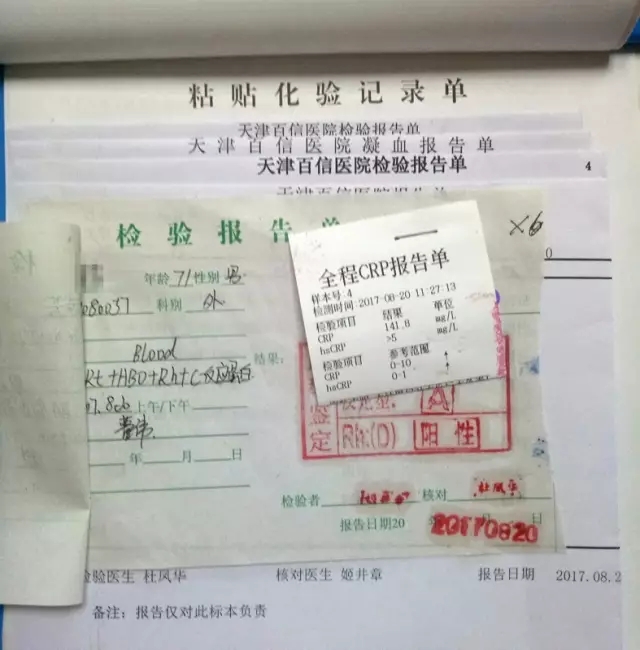 粘贴化验记录单
天津百信医院检验报告单
天津百信医院凝血报告单
天津百信医院检验报告单
4
检验报告单
×6
0
年龄 71 性别 男
080037 科别 外
Blood
结果:
Rt+ABO+Rh+C反应蛋白
上午/下午
年 月 日
全程CRP报告单
样本号:4
检测时间:2017-08-20 11:27:13
检验项目 结果 单位
CRP 141.8 mg/L
hsCRP >5 mg/L
检验项目 参考范围
CRP 0-10 ↑
hsCRP 0-1 ↑
鉴定
A
Rh:(D) 阳性
检验者 核对 杜凤华
报告日期20 日
20170820
检验医生 杜凤华 核对医生 姬井章 报告日期 2017.08.2
备注: 报告仅对此标本负责